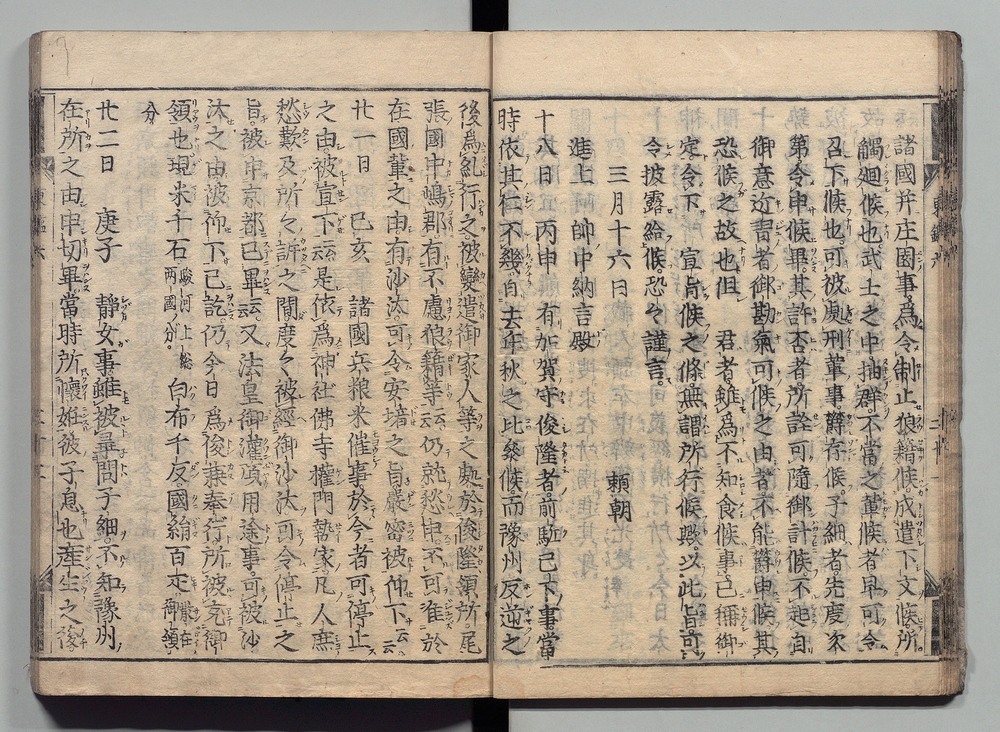 諸國并庄園事為令制止狼籍候成遣下文候所
觸廻候也武士之中抽群不當之輩候者早可令
召下候也可被處刑輩事辭存候子細者先度次
第令申候畢其許否者所詮可隨御計候不起自
御意近習者御勘氣可候之由者不能辭申候其
恐候之故也但 君者雖為不知食候事已稱御
定令下 宣旨候之條無謂所行候歟以此旨可
令披露給候恐々謹言
三月十六日 頼朝
進上 帥中納言殿
十八日丙申 有加賀守俊隆者前駈已下事當
時依其仁不幾自去年秋之比參候而豫州反逆之
後為糺行之被變遣御家人等之處於俊隆領所尾
張國中嶋郡有不慮狼籍等云云仍就愁申不可准於
在國輩之由有沙汰可令安堵之旨嚴密被仰下云云
廿一日 己亥 諸國兵粮米催事於今者可停止
之由被宣下云云是依為神社佛寺權門勢家凡人庶
愁歎及所々訴之間度々被經御沙汰可令停止之
旨被申京都已畢云云又法皇御灌頂用途事可被沙
汰之由被仰下已訖仍今日為俊兼奉行所被充御
領也現米千石駿河上総両國分白布千反國絹百疋散在御領
分
廿二日 庚子 靜女事雖被尋問子細不知豫州
在所之由申切畢當時所懷妊彼子息也産生之後